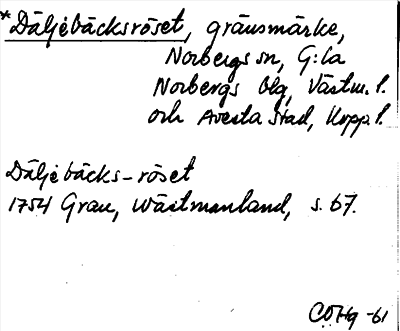 *Däljebäcksröset, gränsmärke,
Norbergs sn, G:la
Norbergs blg, Västm. l.
och Avesta stad, Kopp. l.
Däljebäcks-röset
1754 Grau, Wästmanland, s. 67.
COHg -61